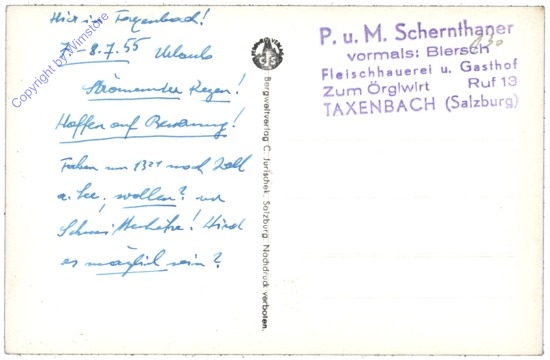 Hier in Taxenbach!
7.-8.7.55 Urlaub
Strömender Regen!
Hoffen auf Besserung!
Fahren um 13 21 nach Zell
a. See, wollen? und
Schmittenhöhe! Wird
es möglich sein?
P. u. M. Schernthaner
vormals: Biersch
Fleischhauerei u. Gasthof
Zum Örglwirt Ruf 13
TAXENBACH (Salzburg)
Bergweltverlag C. Jurischek, Salzburg, Nachdruck verboten.
Copyright by: Wimstore